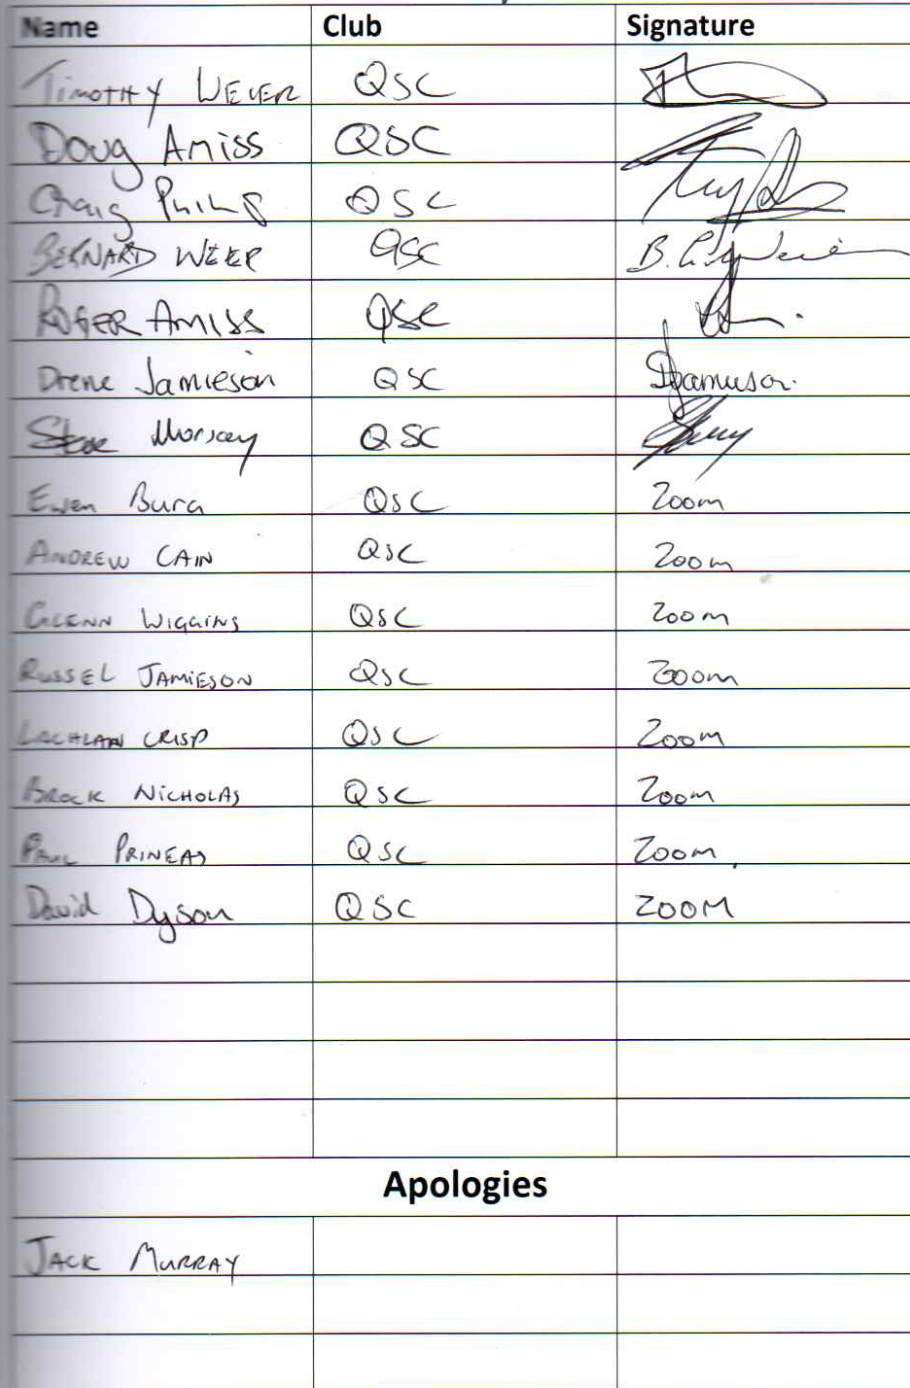 Name Club Signature
Timothy Weier QSC
Doug Amiss QSC
Craig QSC
BERNARD QSC B.
ROGER AMISS QSC
Drene Jamieson QSC Jamieson
Steve QSC
Ewen QSC Zoom
ANDREW CAIN QSC Zoom
GLENN WIGGINS QSC Zoom
RUSSEL JAMIESON QSC Zoom
LACHLAN CRISP QSC Zoom
BROCK NICHOLAS QSC Zoom
PAUL PRINEAS QSC Zoom
David Dyson QSC ZOOM
Apologies
JACK MURRAY